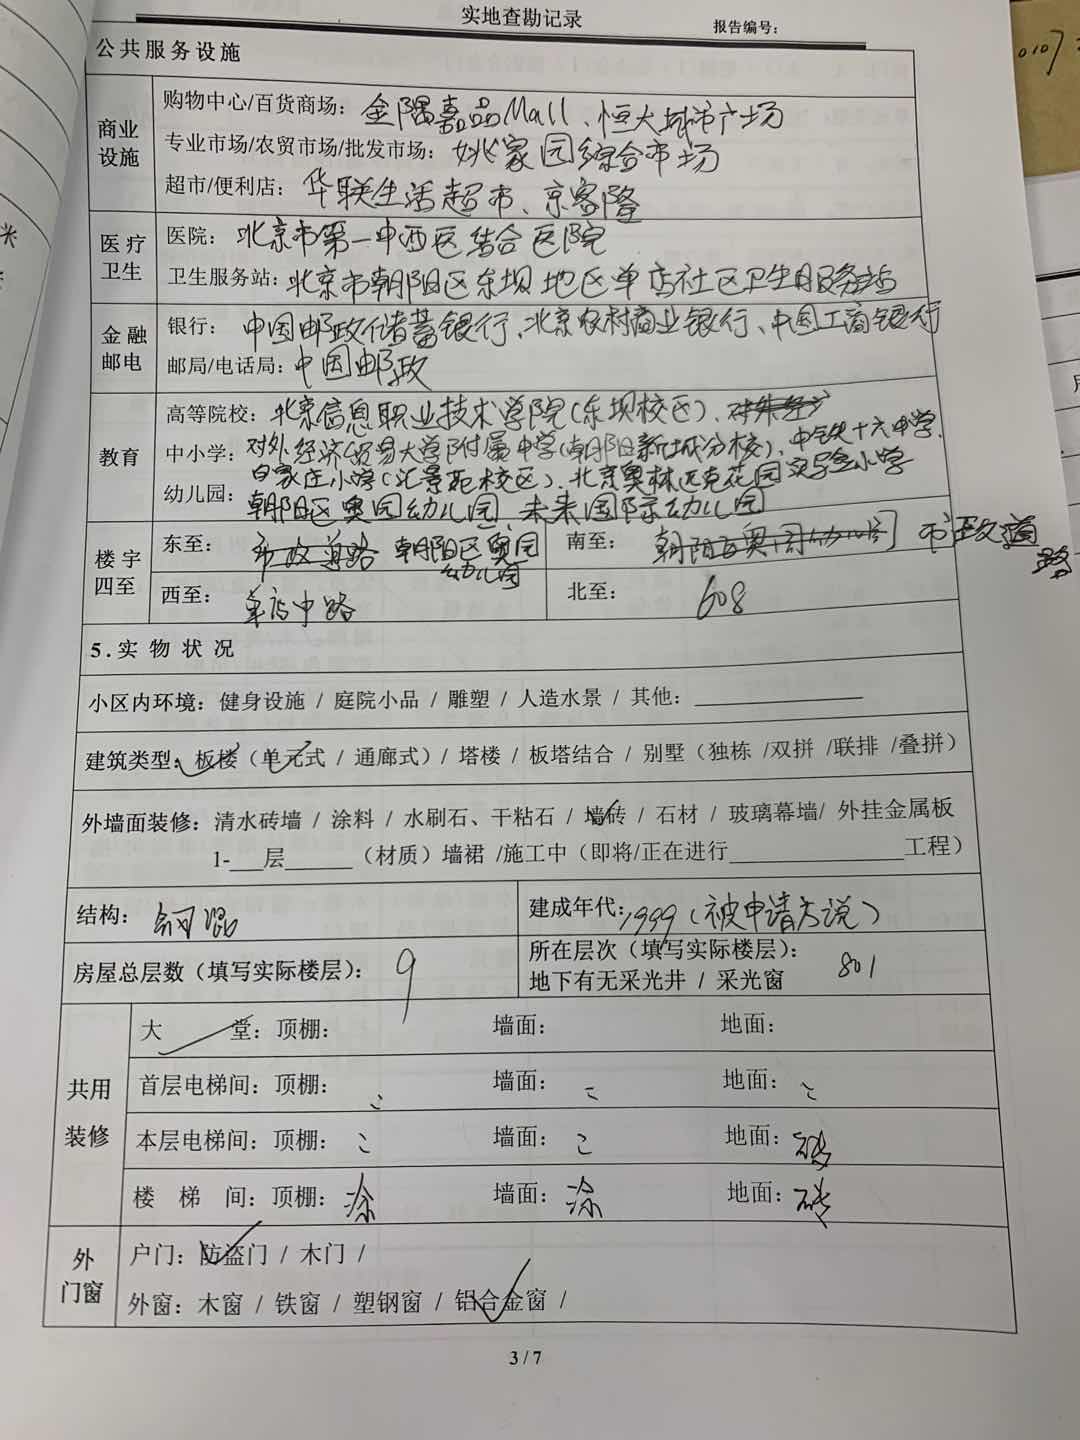 实地查勘记录
报告编号：
0107
公共服务设施
商业设施
购物中心/百货商场：金隅嘉品Mall、恒大城市广场
专业市场/农贸市场/批发市场：姚家园综合市场
超市/便利店：华联生活超市、京客隆
医疗卫生
医院：北京市第一中西医结合医院
卫生服务站：北京市朝阳区东坝地区单店社区卫生服务站
金融邮电
银行：中国邮政储蓄银行、北京农村商业银行、中国工商银行
邮局/电话局：中国邮政
教育
高等院校：北京信息职业技术学院（东坝校区）、
中小学：对外经济贸易大学附属中学（朝阳新城分校）、中铁十六中学、
白家庄小学（汇景苑校区）、北京奥林匹克花园实验小学
幼儿园：朝阳区奥园幼儿园、未来国际幼儿园
楼宇四至
东至：市政道路 朝阳区奥园幼儿园
南至：朝阳区奥园幼儿园 市政道路
西至：单店中路
北至：608
5.实物状况
小区内环境：健身设施 / 庭院小品 / 雕塑 / 人造水景 / 其他：
建筑类型：板楼（单元式 / 通廊式）/ 塔楼 / 板塔结合 / 别墅（独栋 /双拼 /联排 /叠拼）
外墙面装修：清水砖墙 / 涂料 / 水刷石、干粘石 / 墙砖 / 石材 / 玻璃幕墙/ 外挂金属板
1-___层______（材质）墙裙 /施工中（即将/正在进行________________工程）
结构：钢混
建成年代：1999（被申请方说）
房屋总层数（填写实际楼层）：9
所在层次（填写实际楼层）：801
地下有无采光井 / 采光窗
共用装修
大 堂：顶棚： 墙面： 地面：
首层电梯间：顶棚： 墙面： 地面：
本层电梯间：顶棚： 墙面： 地面：砖
楼 梯 间：顶棚：涂 墙面：涂 地面：砖
外门窗
户门：防盗门 / 木门 /
外窗：木窗 / 铁窗 / 塑钢窗 / 铝合金窗 /
3 / 7